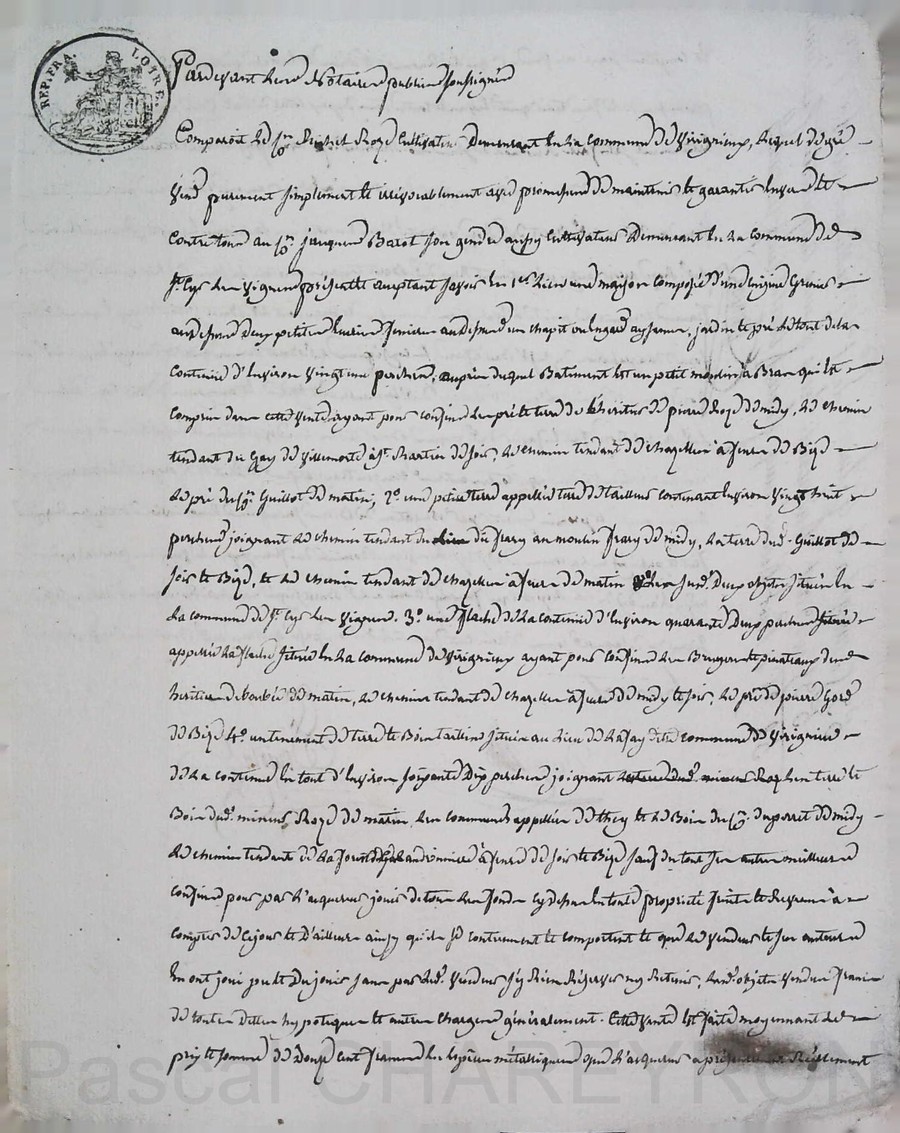 REP. FRA. LOIRE.
Pardevant le no Notaire public soussigné
Comparoit le Sr. Roze Cultivateur Demeurant en la Commune de Virignieux, lequel de gré
Vend purement simplement et irrévocablement avec promesse de maintenir et garantir envers et
Contre tous au Sr. jacques Barot son gendre aussy Cultivateur Demeurant en la Commune de
St. Cyr les Vignes présent et acceptant savoir en 1er lieu une maison composé d'une Cuizine Grenier
au dessus Deux petites Ecuries fenière au dessus un chapit ou engard aysances, jardin et pré le tout de la
Contenue d'Environ Vingt une perches, auprès duquel Batiment est un petit moulin à Bras qui est
Compris dans cette vente ayant pour confins les pré et terre de l'heritier de pierre Roze de midy, le chemin
tendant du Gay de Villemonte à St. Martin de soir, le chemin tendant de Chazelles à feurs de Bize
le pré du Sr. Guillot de matin, 2o. une petite terre appellée terre de tailleur contenant Environ Vingt huit
perches joignant le chemin tendant du au moulin de midy, la terre dud. Guillot de
soir et Bize, et le chemin tendant de Chazelles à feurs de matin les susd. Deux objets situés en
La commune de St. Cyr les Vignes. 3o. une flache de la contenue d'Environ quarante Deux perches
appellée la flache située en la commune de Virignieux ayant pour confins les Bruyeres et pinateaux des
heritiers de matin, le chemin tendant de Chazelles à feurs de midy et soir, le pré de pierre Goré
de Bize 4o. un tènement de terre et Bois taillis situés au lieu de Lafay dite commune de Virignieux
de la contenue en tout d'Environ soixante Dix perches joignant les terre et
Bois dud. Roze de matin, les communes appellées de they et le Bois du Sr. duperret de midy
le chemin tendant de à feurs de soir et Bize sauf du tout ses autres meilleurs
confins pour par l'acquereur jouir de tous les fonds cy dessus en toute propriété fruits et Revenu à
compter de ce jour et d'ailleurs ainsy qu'ils se contiennent et comportent et que le vendeur et ses auteurs
En ont joui peut Du jouir sans par led. Vendeur s'y Rien Réserver ny Retenir, Lesd. objets vendus francs
de toutes Dettes hypoteques et autres Charges généralement. Cette Vente est faite moyennant le
prix et somme de Douze cent francs en Espèces métalliques que l'acquereur a présentement Réellement
Pascal CHAREYRON